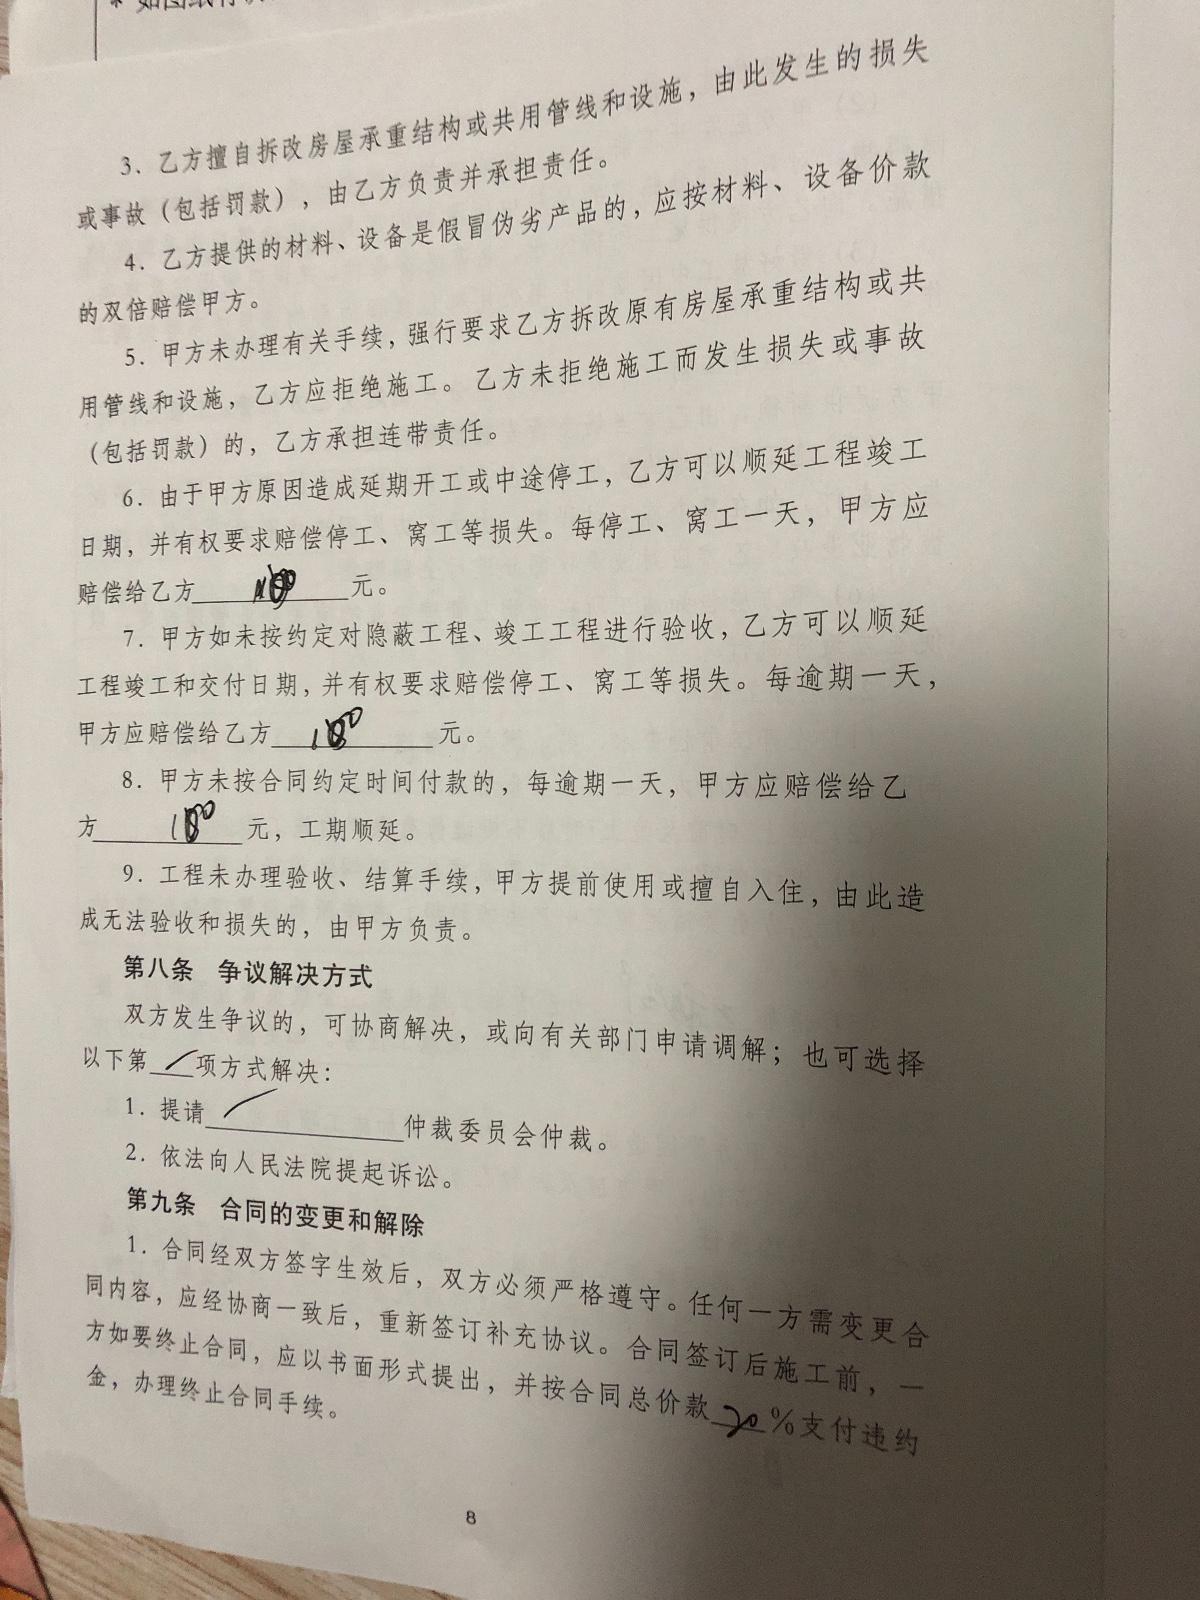 3. 乙方擅自拆改房屋承重结构或共用管线和设施，由此发生的损失
或事故（包括罚款），由乙方负责并承担责任。
4. 乙方提供的材料、设备是假冒伪劣产品的，应按材料、设备价款
的双倍赔偿甲方。
5. 甲方未办理有关手续，强行要求乙方拆改原有房屋承重结构或共
用管线和设施，乙方应拒绝施工。乙方未拒绝施工而发生损失或事故
（包括罚款）的，乙方承担连带责任。
6. 由于甲方原因造成延期开工或中途停工，乙方可以顺延工程竣工
日期，并有权要求赔偿停工、窝工等损失。每停工、窝工一天，甲方应
赔偿给乙方 元。
7. 甲方如未按约定对隐蔽工程、竣工工程进行验收，乙方可以顺延
工程竣工和交付日期，并有权要求赔偿停工、窝工等损失。每逾期一天，
甲方应赔偿给乙方 100 元。
8. 甲方未按合同约定时间付款的，每逾期一天，甲方应赔偿给乙
方 100 元，工期顺延。
9. 工程未办理验收、结算手续，甲方提前使用或擅自入住，由此造
成无法验收和损失的，由甲方负责。
第八条 争议解决方式
双方发生争议的，可协商解决，或向有关部门申请调解；也可选择
以下第 / 项方式解决：
1. 提请 / 仲裁委员会仲裁。
2. 依法向人民法院提起诉讼。
第九条 合同的变更和解除
1. 合同经双方签字生效后，双方必须严格遵守。任何一方需变更合
同内容，应经协商一致后，重新签订补充协议。合同签订后施工前，一
方如要终止合同，应以书面形式提出，并按合同总价款 %支付违约
金，办理终止合同手续。
8